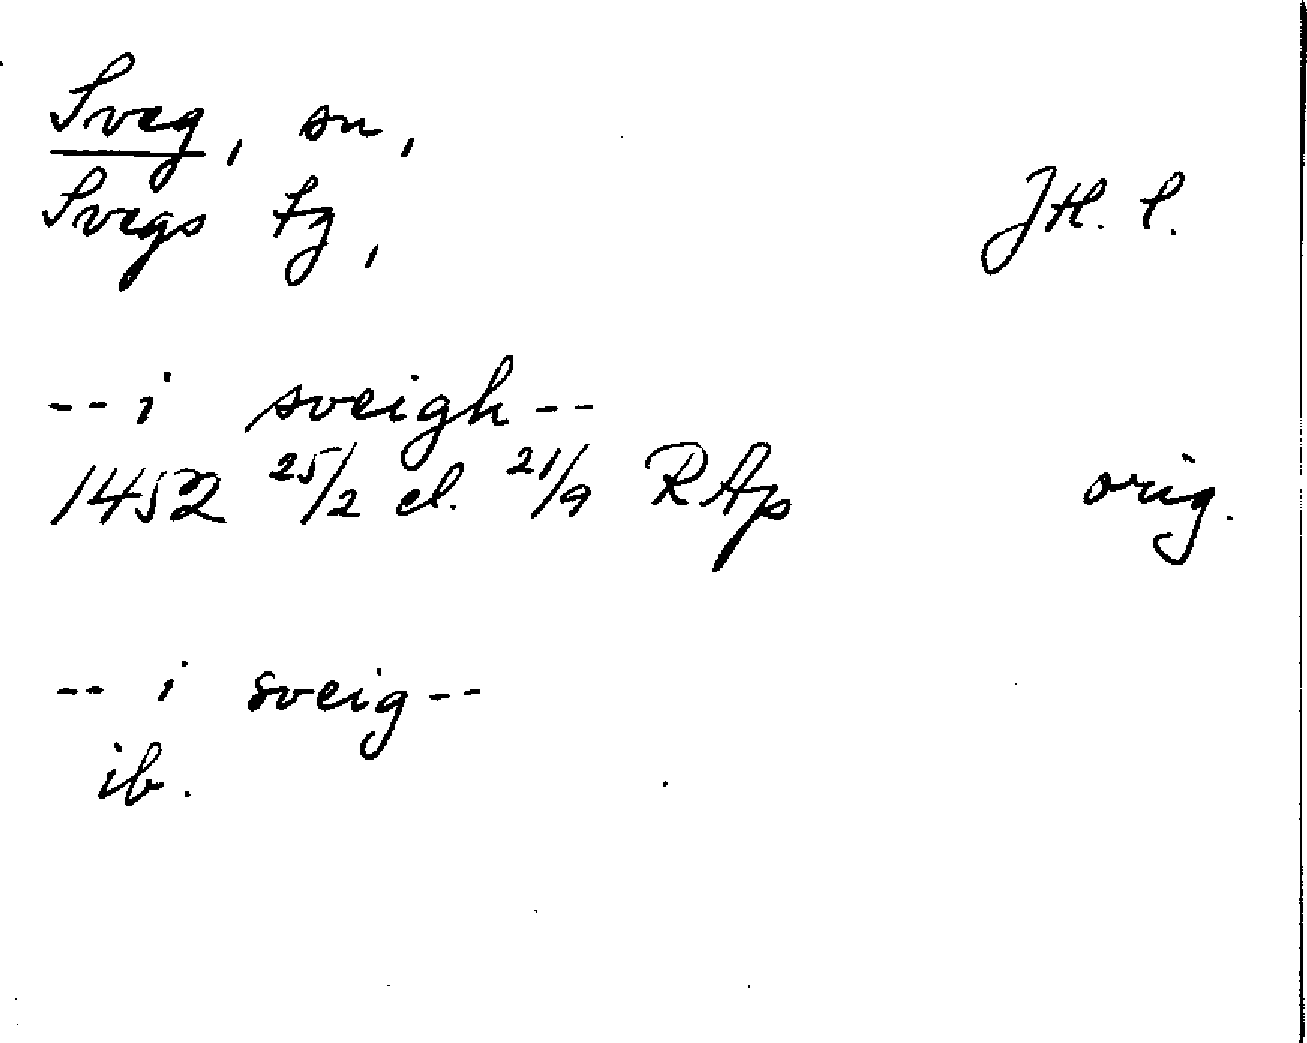 Sveg, sn,
Svegs tg, Jtl. l.
-- i sveigh --
1452 25/2 el. 21/9 RAp orig.
-- i sveig --
ib.